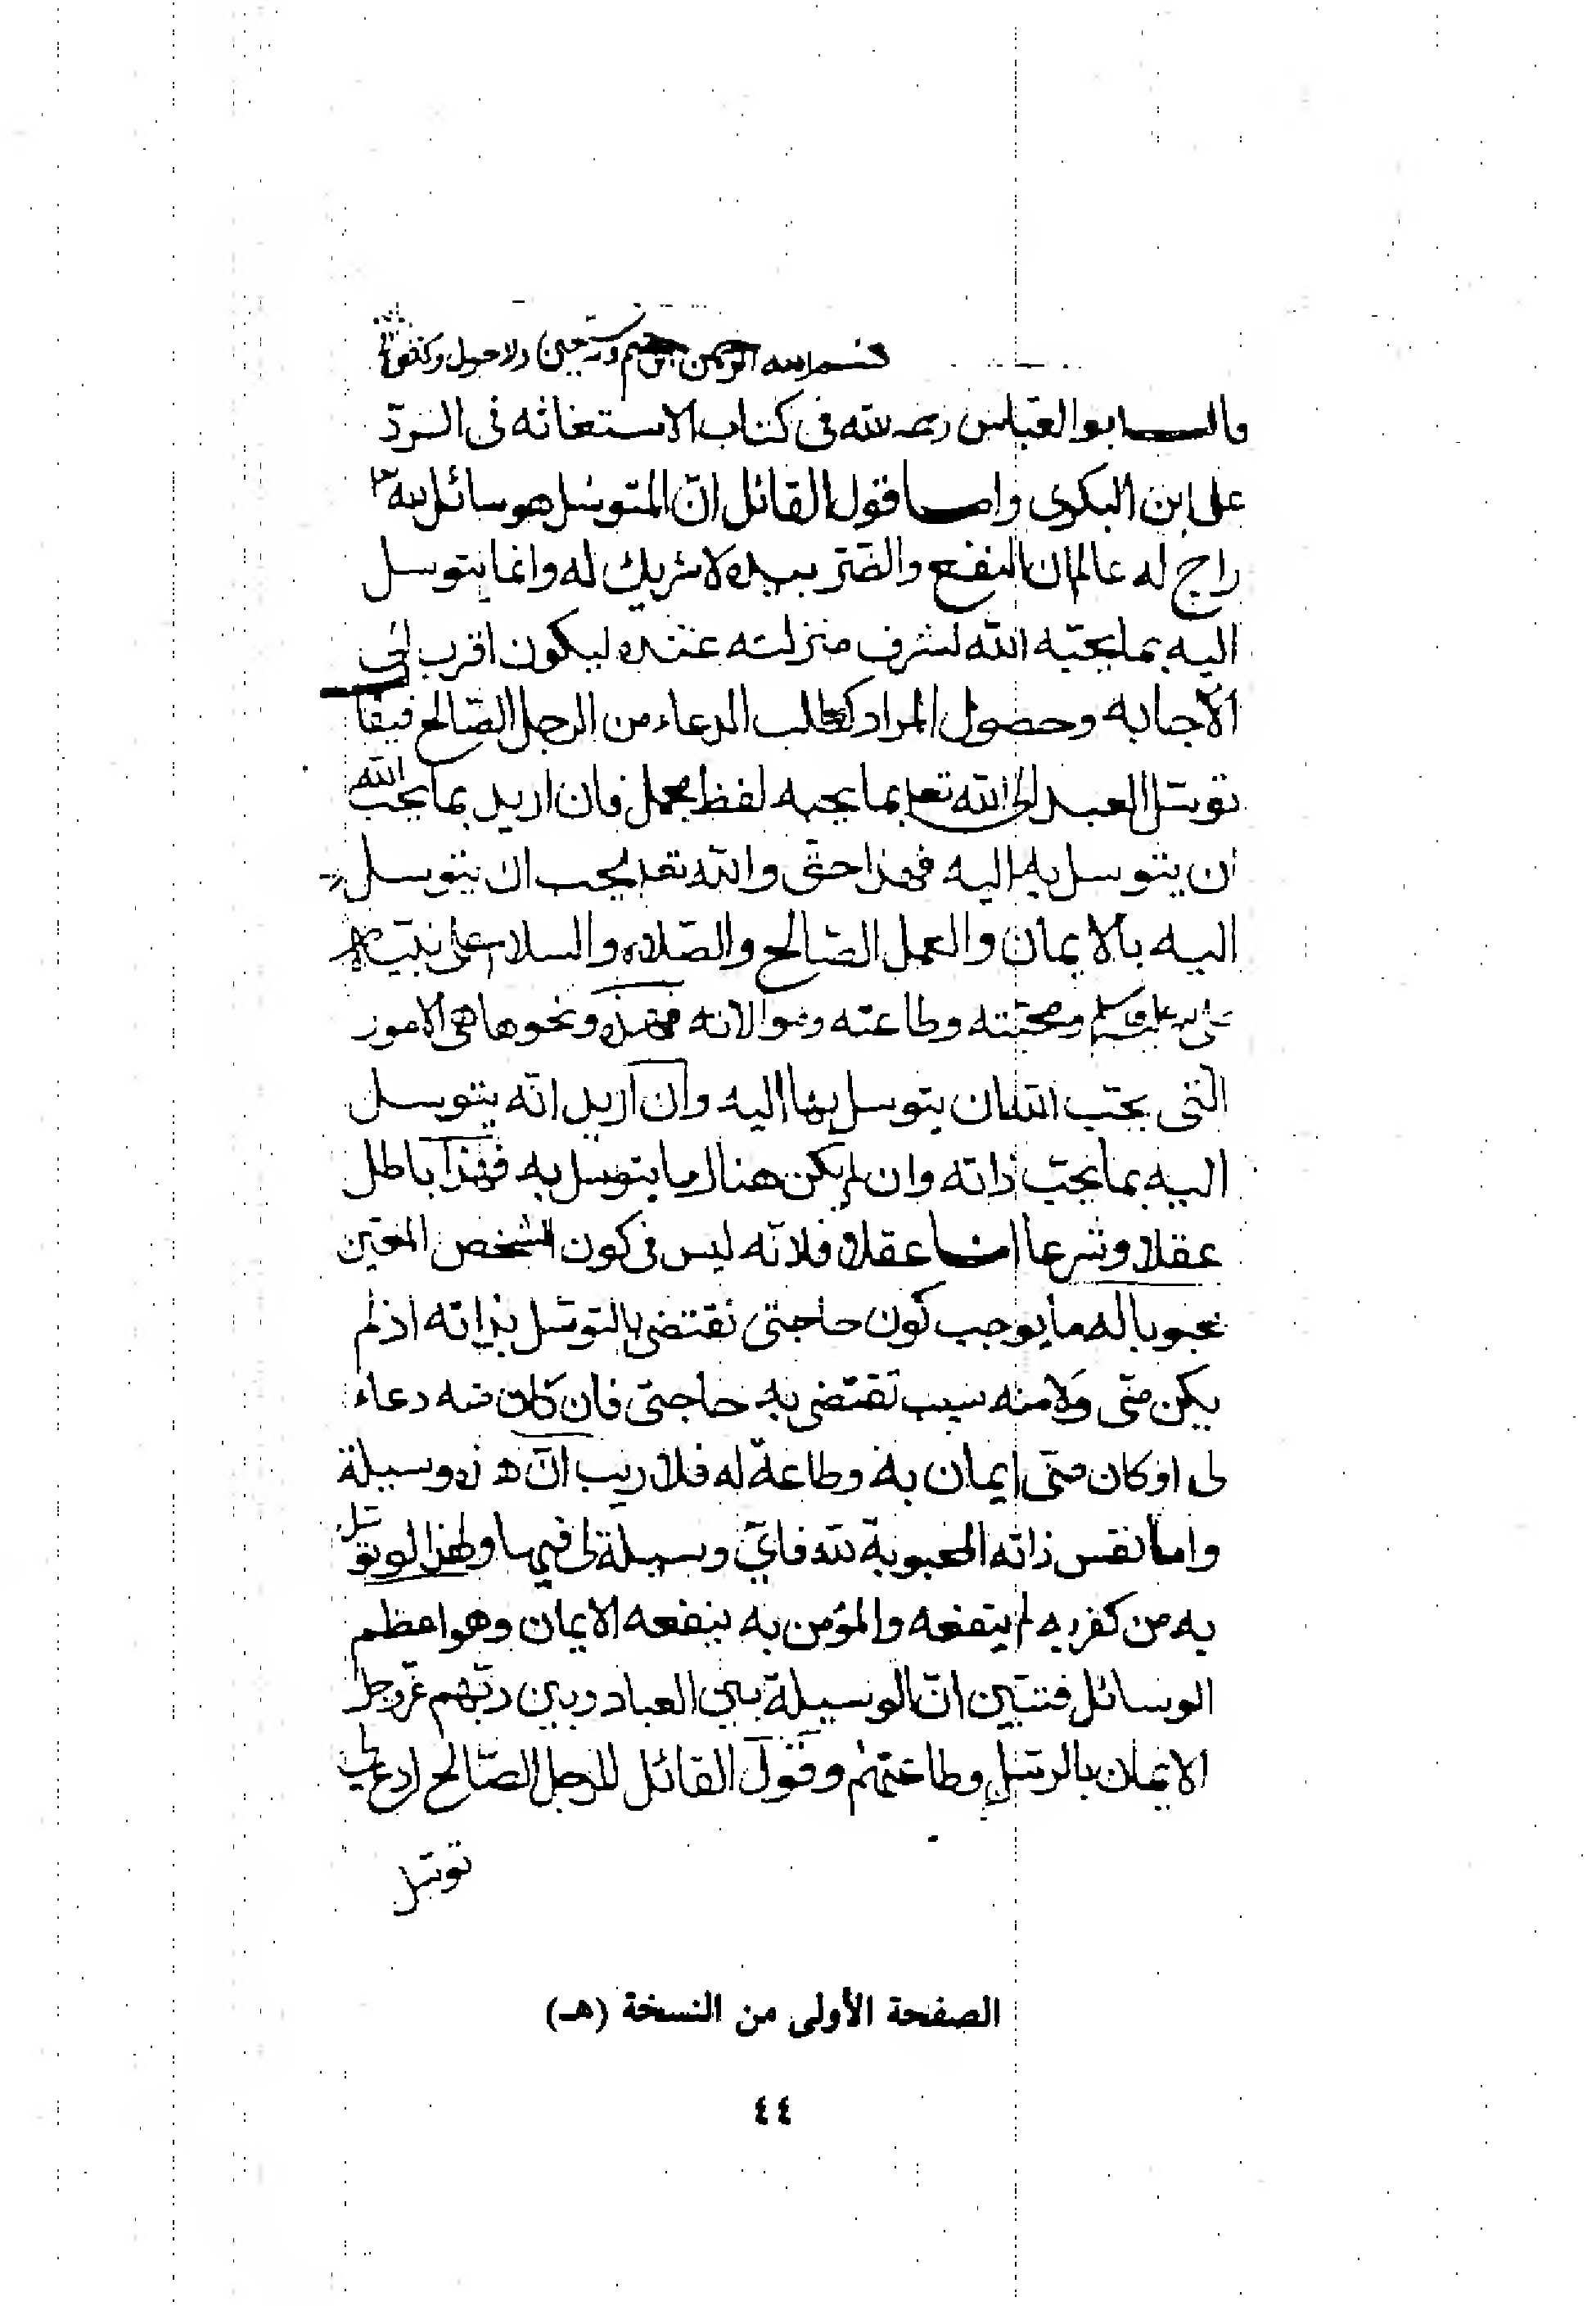 بسم الله الرحمن الرحيم وبه نستعين ولا حول ولا قوة
قال ابو العباس رحمه الله في كتاب الاستغاثه في الردّ
على ابن البكرى واما قول القائل انّ المتوسّل هو سائل لله
راج له عالم ان النفع والضّر بيده لا شريك له وانما يتوسل
اليه بما يحبّه الله لشرف منزلته عنده ليكون اقرب الى
الاجابه وحصول المراد كطلب الدعاء من الرجل الصّالح فيقال
توسّل العبد الى الله تعلى بما يحبه لفظ مجمل فان اريد بما يحب الله
ان يتوسل به اليه فهذا حقّ والله تعلى يحب ان يتوسل
اليه بالايمان والعمل الصّالح والصّلاه والسلام على نبيّه
صلى الله عليه وسلم ومحبّته وطاعته وموالاته فهذه ونحوها هى الامور
الّتى يحبّ الله ان يتوسل بها اليه وان اريد انّه يتوسل
اليه بما يحبّ ذاته وان لم يكن هناك ما يتوسل به فهذا باطل
عقلا وشرعا امّا عقلا فلانّه ليس فى كون الشخص المعيّن
محبوبا له ما يوجب كون حاجتى تقتضى بالتوسّل بذاته اذ لم
يكن منّى ولا منه سبب تقتضى به حاجتى فان كان منه دعاء
لى او كان منّى ايمان به وطاعة له فلا ريب انّ هذه وسيلة
واما نفس ذاته المحبوبة لله فاىّ وسيلة لى فيها ولهذا لو توسّل
به من كفر به لم ينفعه والمؤمن به ينفعه الايمان وهو اعظم
الوسائل فتبيّن انّ الوسيلة بين العباد وبين ربّهم عزّ وجل
الايمان بالرسل وطاعتهم وقول القائل للرجل الصّالح ادع لى
توسّل
الصفحة الأولى من النسخة (هـ)
٤٤